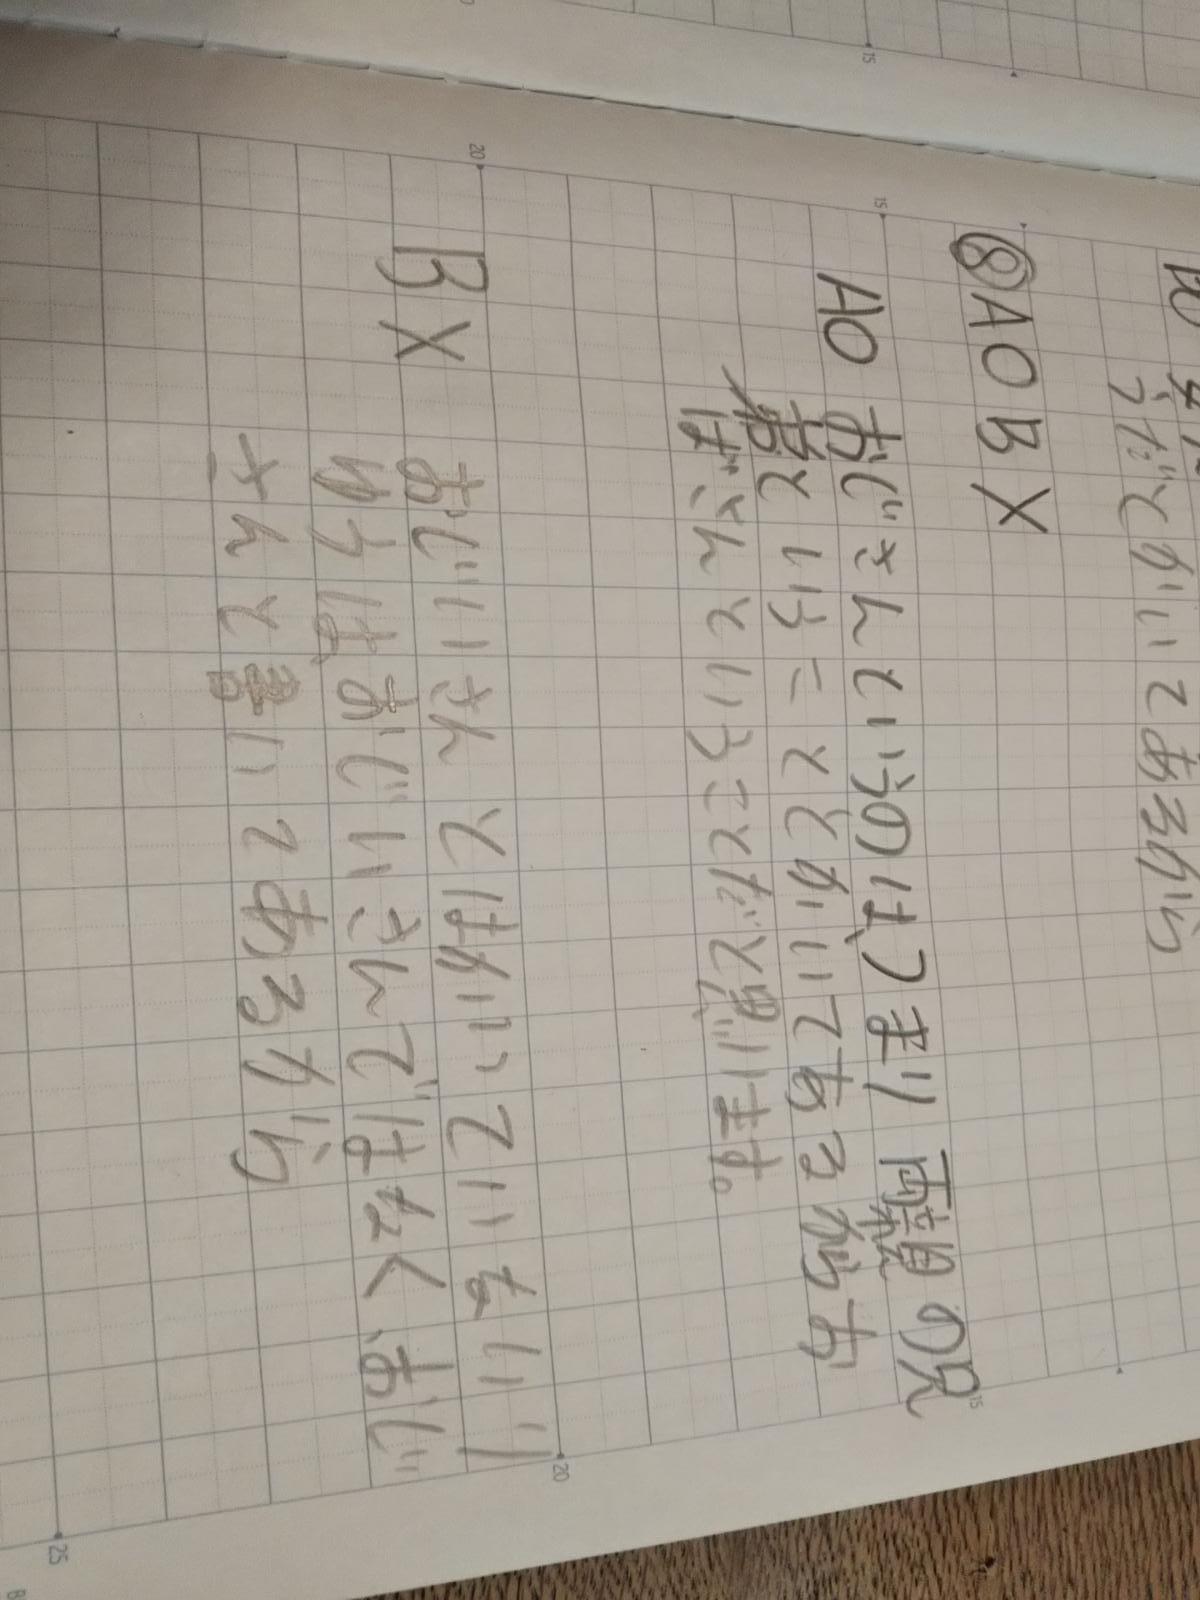 うだとかいてあるから
⑧A○B×
A○ おじさんていうのはつまり両親の兄
弟ということとかいてあるからお
ばさんということだと思います。
B× おじいさんとはかいていないり
ゆうはおじいさんではなく、おじ
さんと書いてあるから
15
15
15
20
20
25